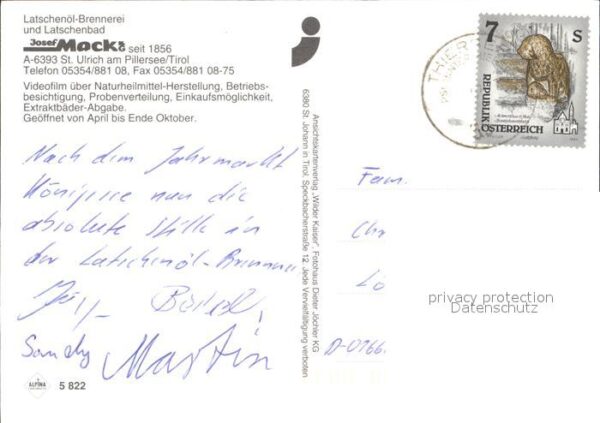 Latschenöl-Brennerei
und Latschenbad
Josef Mack KG seit 1856
A-6393 St. Ulrich am Pillersee/Tirol
Telefon 05354/881 08, Fax 05354/881 08-75
Videofilm über Naturheilmittel-Herstellung, Betriebs-
besichtigung, Probenverteilung, Einkaufsmöglichkeit,
Extraktbäder-Abgabe.
Geöffnet von April bis Ende Oktober.
Nach dem Jahrmarkt
nun die
absolute Stille in
der Latschenöl-Brennerei
Sandy Martin
ALPINA
5 822
Ansichtskartenverlag „Wilder Kaiser", Fotohaus Dieter Jöchler KG
6380 St. Johann in Tirol, Speckbacherstraße 12 Jede Vervielfältigung verboten
THIER
7 S
REPUBLIK
ÖSTERREICH
Fam.
Chr
Lö
D-0766
privacy protection
Datenschutz